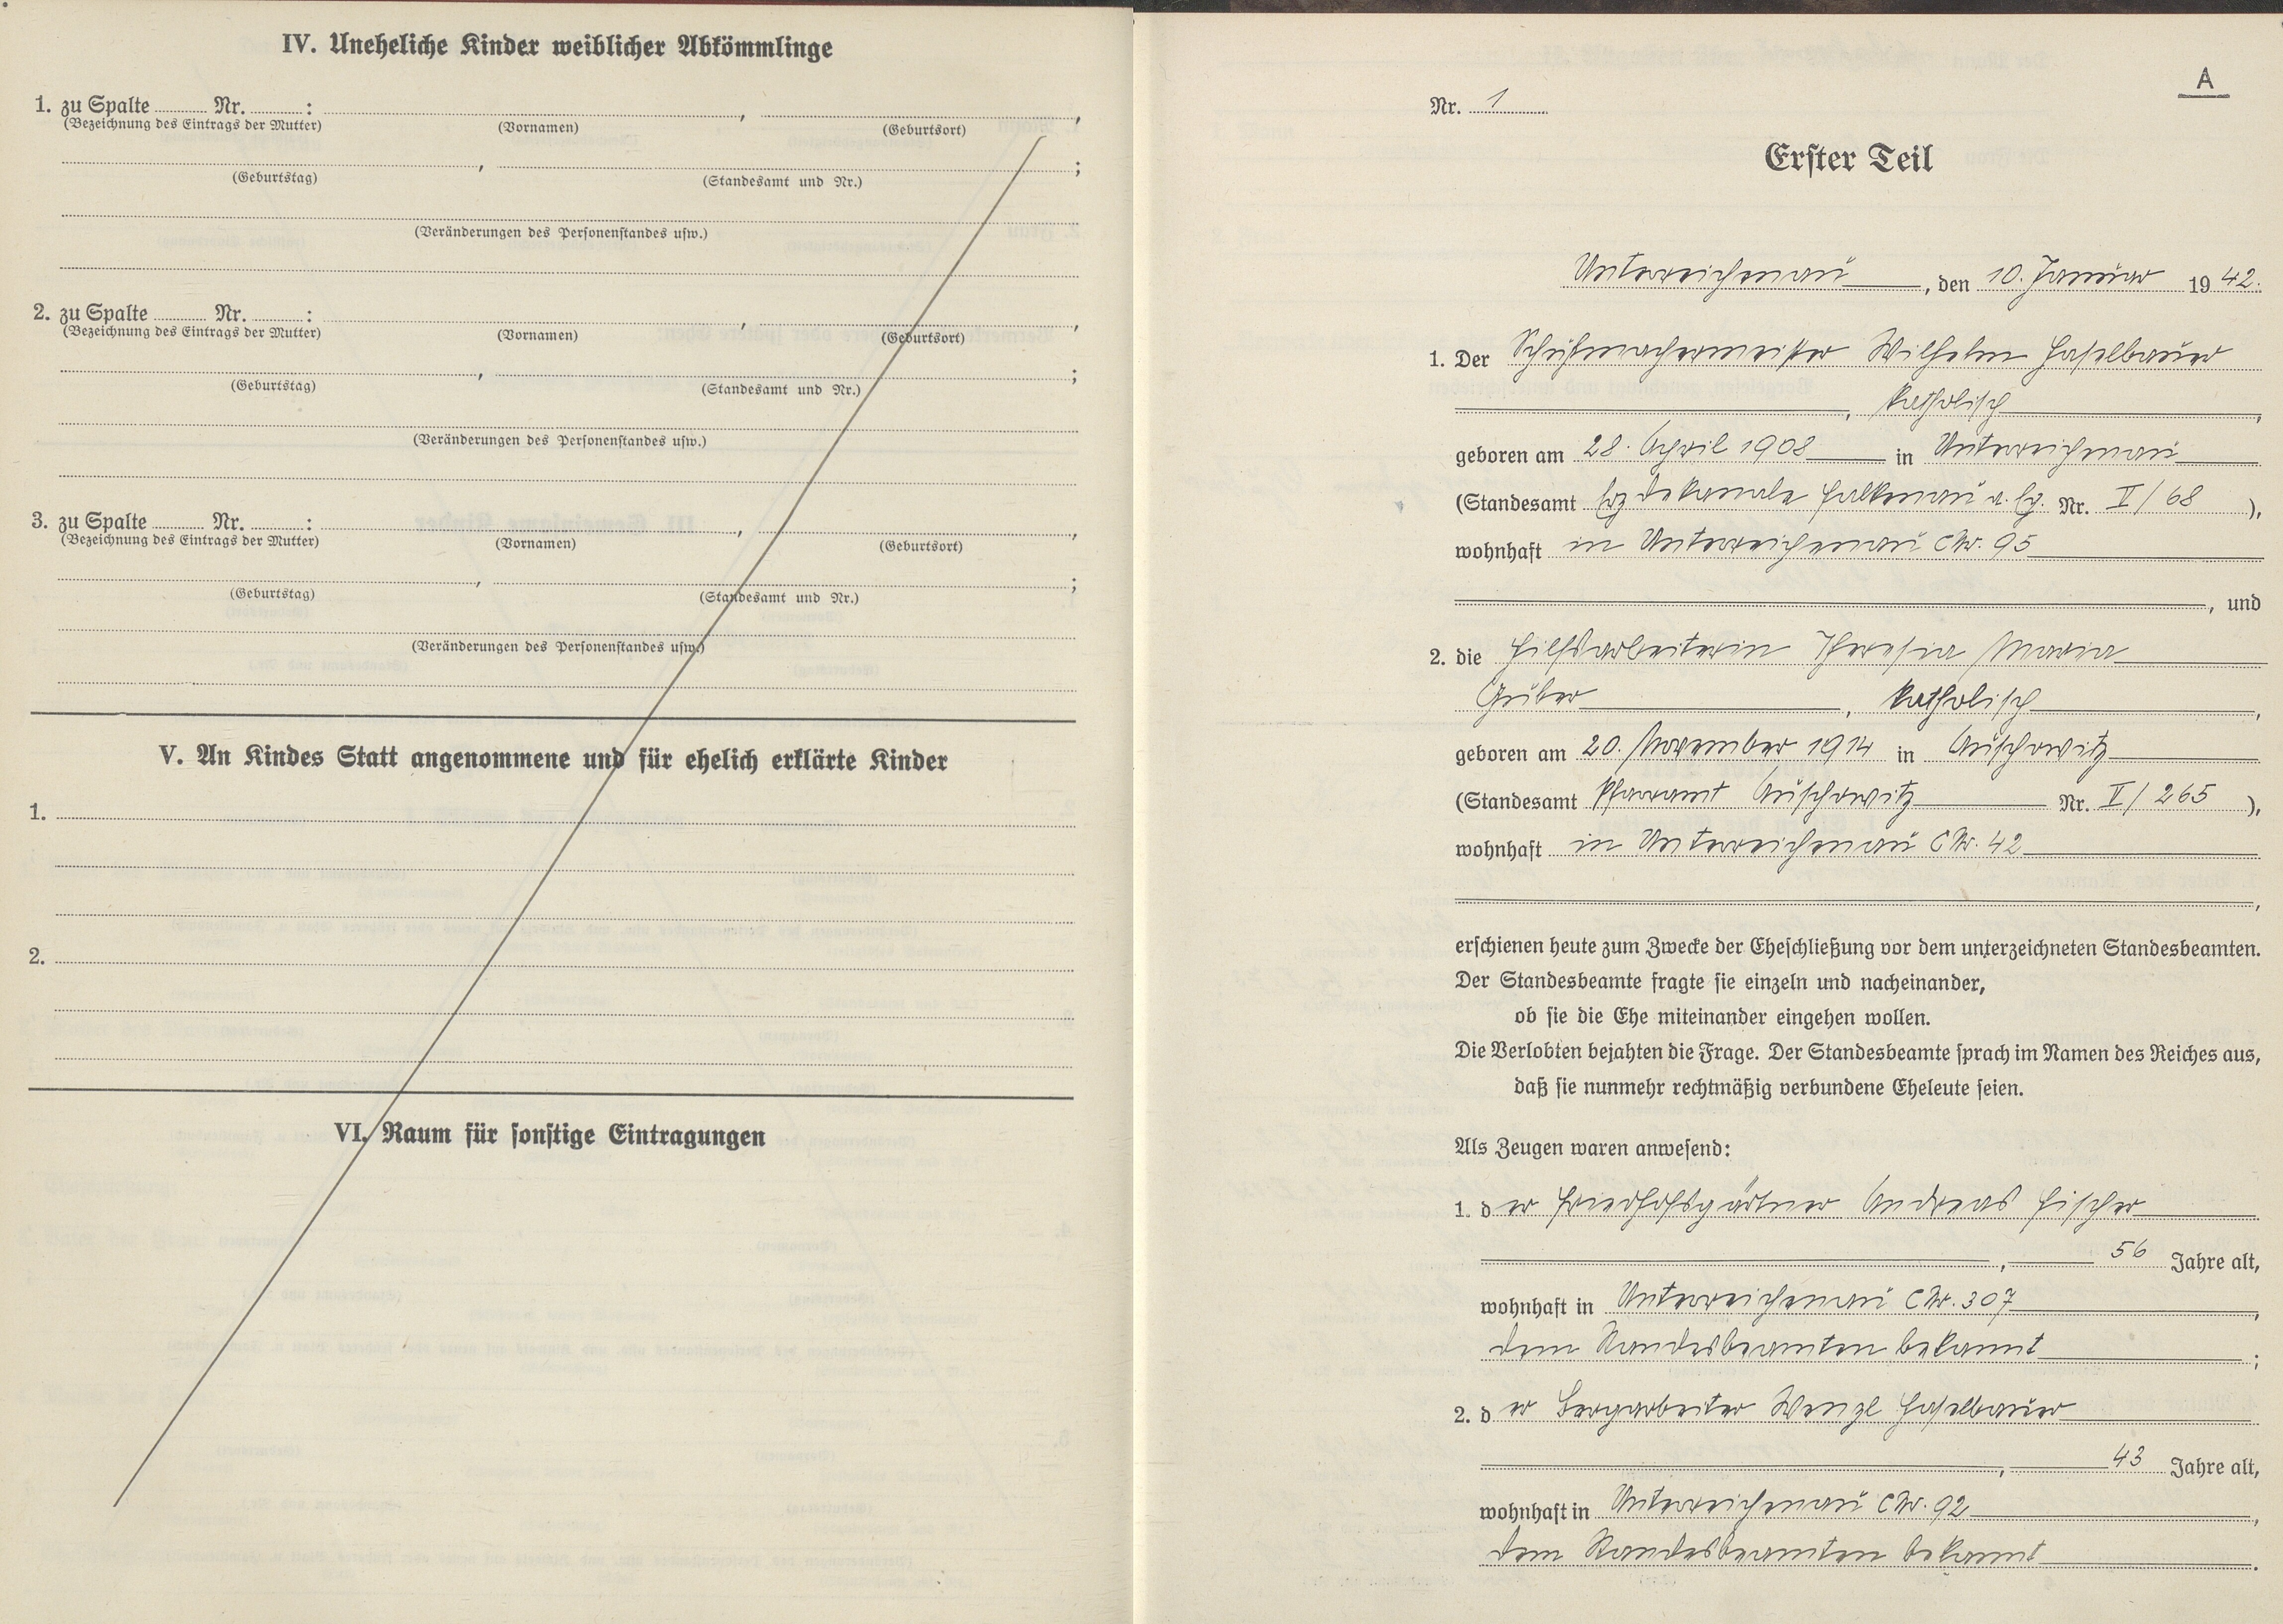 IV. Uneheliche Kinder weiblicher Abkömmlinge
1. zu Spalte Nr. : , ,
(Bezeichnung des Eintrags der Mutter) (Vornamen) (Geburtsort)
, ;
(Geburtstag) (Standesamt und Nr.)
(Veränderungen des Personenstandes usw.)
2. zu Spalte Nr. : , ,
(Bezeichnung des Eintrags der Mutter) (Vornamen) (Geburtsort)
, ;
(Geburtstag) (Standesamt und Nr.)
(Veränderungen des Personenstandes usw.)
3. zu Spalte Nr. : , ,
(Bezeichnung des Eintrags der Mutter) (Vornamen) (Geburtsort)
, ;
(Geburtstag) (Standesamt und Nr.)
(Veränderungen des Personenstandes usw.)
V. An Kindes Statt angenommene und für ehelich erklärte Kinder
1.
2.
VI. Raum für sonstige Eintragungen
A
Nr. 1
Erster Teil
Unterreichenau, den 10. Januar 1942.
1. Der Schuhmachermeister Wilhelm Haselbauer
, katholisch,
geboren am 28. April 1908 in Unterreichenau
(Standesamt Erzdekanale Falkenau a. Eg. Nr. II/68),
wohnhaft in Unterreichenau CNr. 95
, und
2. die Hilfsarbeiterin Theresia Maria
Guber, katholisch,
geboren am 20. November 1914 in Auschowitz
(Standesamt Pfarramt Auschowitz Nr. II/265),
wohnhaft in Unterreichenau CNr. 42
,
erschienen heute zum Zwecke der Eheschließung vor dem unterzeichneten Standesbeamten.
Der Standesbeamte fragte sie einzeln und nacheinander,
ob sie die Ehe miteinander eingehen wollen.
Die Verlobten bejahten die Frage. Der Standesbeamte sprach im Namen des Reiches aus,
daß sie nunmehr rechtmäßig verbundene Eheleute seien.
Als Zeugen waren anwesend:
1. der Friedhofsgärtner Andreas Fischer
, 56 Jahre alt,
wohnhaft in Unterreichenau CNr. 307,
dem Standesbeamten bekannt;
2. der Bergarbeiter Wenzl Haselbauer
, 43 Jahre alt,
wohnhaft in Unterreichenau CNr. 92,
dem Standesbeamten bekannt.